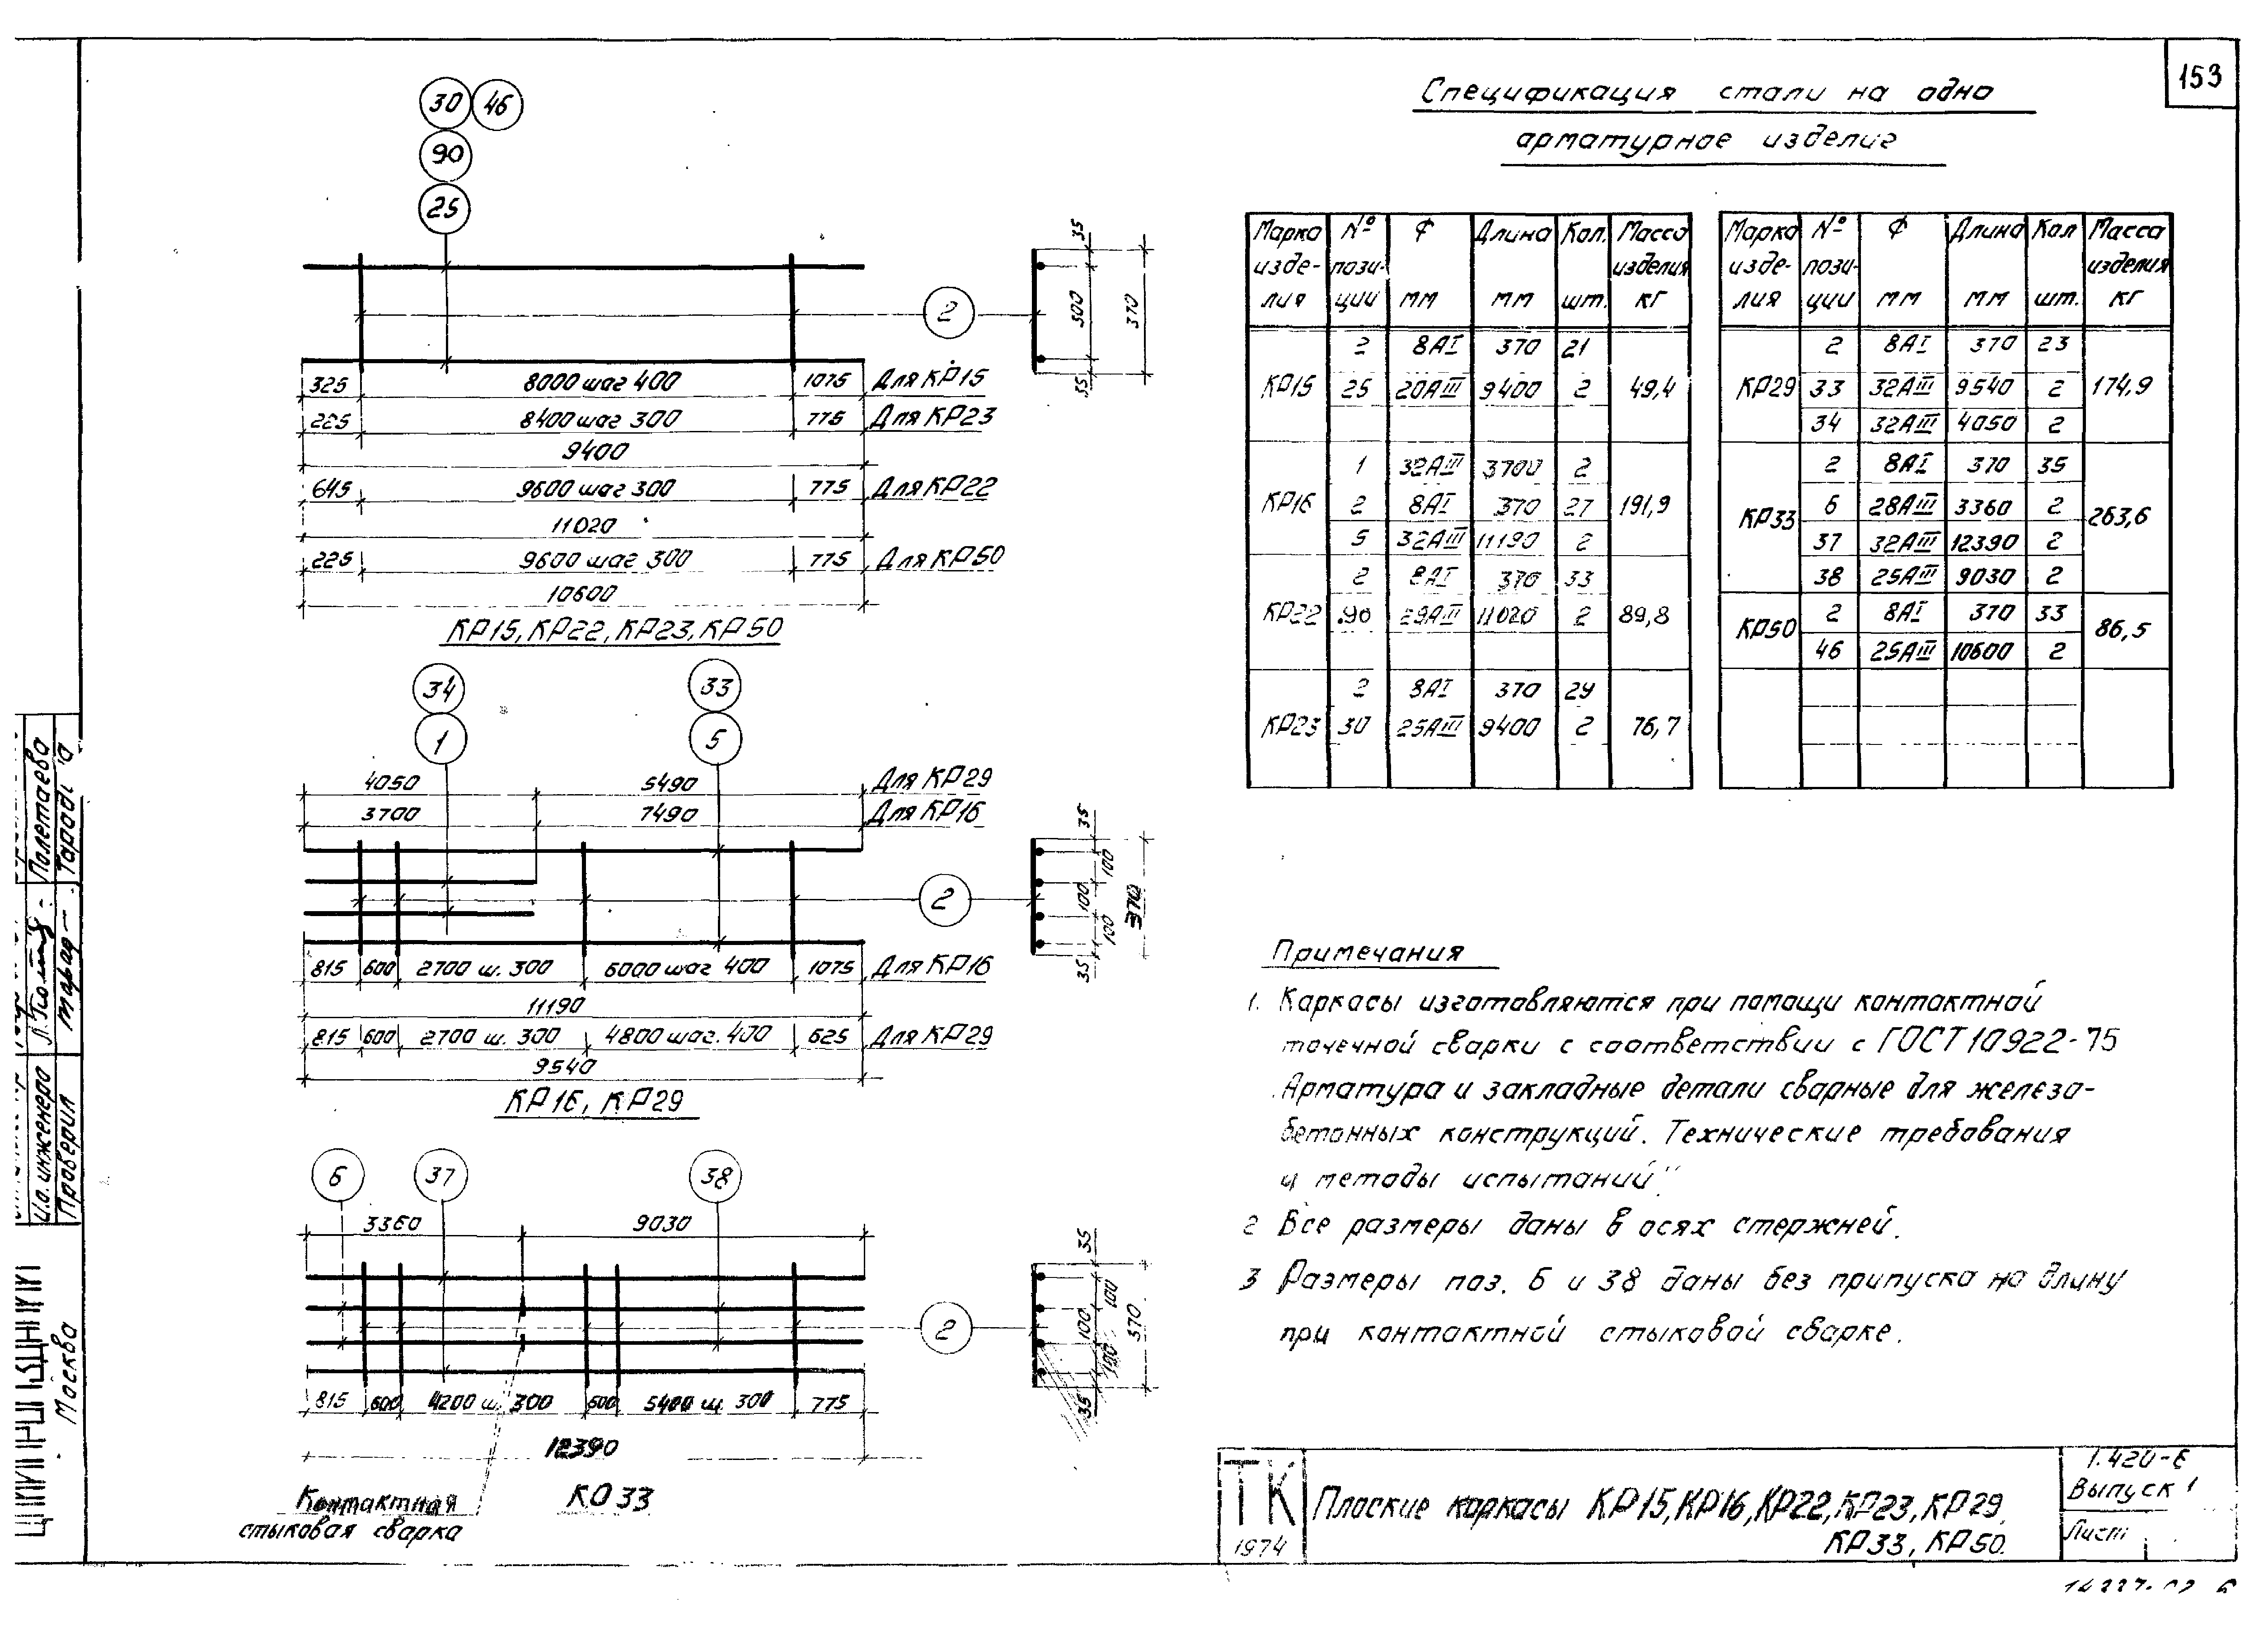 153
Спецификация стали на одно
арматурное изделие
30 46
90
25
2
35
300
370
35
325 8000 шаг 400 1075 Для КР15
225 8400 шаг 300 775 Для КР23
9400
645 9600 шаг 300 775 Для КР22
11020
225 9600 шаг 300 775 Для КР50
10600
КР15, КР22, КР23, КР50
34 33
1 5
4050 5490 Для КР29
3700 7490 Для КР16
2
35
100
100
100
370
35
815 600 2700 ш. 300 6000 шаг 400 1075 Для КР16
11190
815 600 2700 ш. 300 4800 шаг. 400 625 Для КР29
9540
КР16, КР29
6 37 38
3360 9030
2
35
100
100
100
370
35
815 600 4200 ш. 300 600 5400 ш. 300 775
12390
Контактная
стыковая сварка
КР33
Марка изде- лия | № пози- ции | Ф мм | Длина мм | Кол. шт. | Масса изделия кг
КР15 | 2 | 8АI | 370 | 21 | 49,4
25 | 20АIII | 9400 | 2
КР16 | 1 | 32АIII | 3700 | 2 | 191,9
2 | 8АI | 370 | 27
5 | 32АIII | 11190 | 2
КР22 | 2 | 8АI | 370 | 33 | 89,8
90 | АIII | 11020 | 2
КР23 | 2 | 8АI | 370 | 29 | 76,7
30 | 25АIII | 9400 | 2
Марка изде- лия | № пози- ции | Ф мм | Длина мм | Кол шт. | Масса изделия кг
КР29 | 2 | 8АI | 370 | 23 | 174,9
33 | 32АIII | 9540 | 2
34 | 32АIII | 4050 | 2
КР33 | 2 | 8АI | 370 | 35 | 263,6
6 | 28АIII | 3360 | 2
37 | 32АIII | 12390 | 2
38 | 25АIII | 9030 | 2
КР50 | 2 | 8АI | 370 | 33 | 86,5
46 | 25АIII | 10600 | 2
Примечания
1. Каркасы изготовляются при помощи контактной
точечной сварки с соответствии с ГОСТ 10922-75
„Арматура и закладные детали сварные для железо-
бетонных конструкций. Технические требования
и методы испытаний".
2 Все размеры даны в осях стержней.
3 Размеры поз. 6 и 38 даны без припуска на длину
при контактной стыковой сварке.
ТК
1974
Плоские каркасы КР15, КР16, КР22, КР23, КР29,
КР33, КР50.
1.420-6
Выпуск 1
Лист
И.о. инженера Полетаева
Проверил
Москва